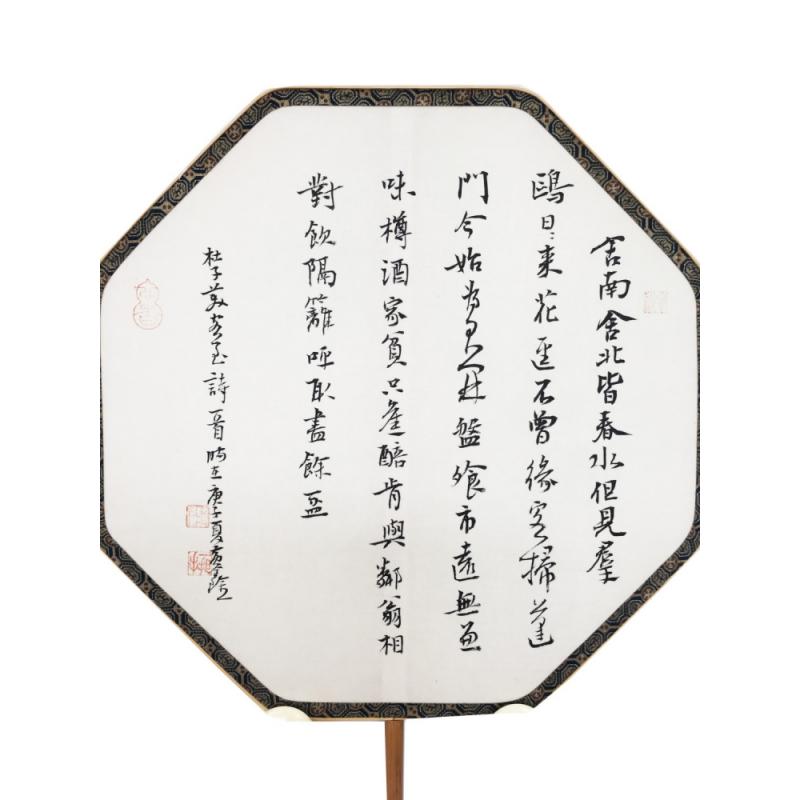 舍南舍北皆春水但見羣
鷗日日来花逕不曾緣客掃蓬
門今始為君開盤飱市遠無兼
味樽酒家貧只舊醅肯與鄰翁相
對飲隔籬呼取盡餘盃
杜子美客至詩一首時在庚子夏